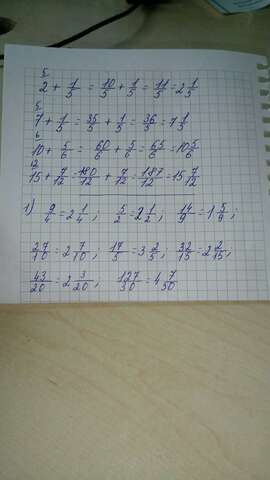 5
2 + 1/5 = 10/5 + 1/5 = 11/5 = 2 1/5
5
7 + 1/5 = 35/5 + 1/5 = 36/5 = 7 1/5
6
10 + 5/6 = 60/6 + 5/6 = 65/6 = 10 5/6
12
15 + 7/12 = 180/12 + 7/12 = 187/12 = 15 7/12
1) 9/4 = 2 1/4 ; 5/2 = 2 1/2 ; 14/9 = 1 5/9 ;
27/10 = 2 7/10 ; 17/5 = 3 2/5 ; 32/15 = 2 2/15 ;
43/20 = 2 3/20 ; 127/30 = 4 7/50